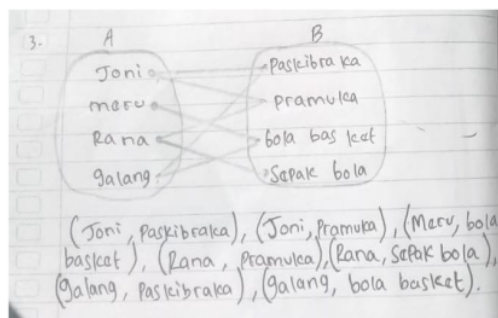 3. A B
Joni Paskibraka
meru Pramuka
Rana bola basket
galang Sepak bola
(Joni, Paskibraka), (Joni, Pramuka), (Meru, bola
basket), (Rana, Pramuka), (Rana, Sepak bola),
(galang, Paskibraka), (galang, bola basket).